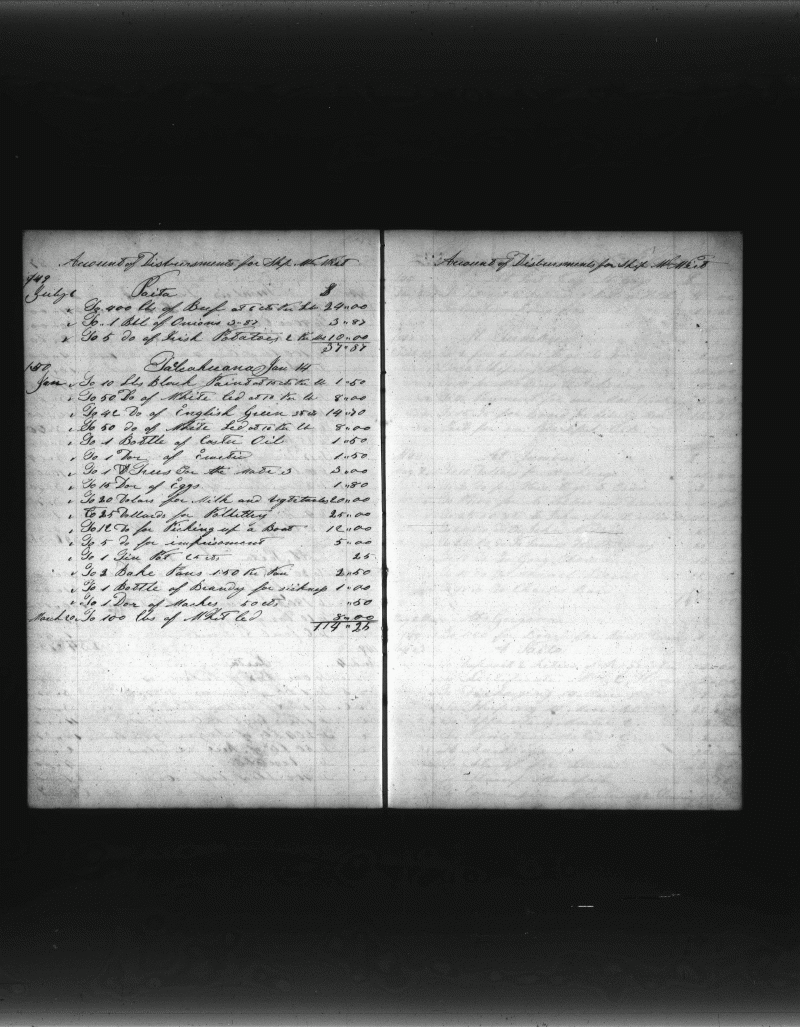 Account of Disbursments for Ship
849
July Paita $
" To 400 lbs of Beef at 6 cts the lb 24"00
" To 1 Bbl of Onions 3-87 3"87
" To 5 do of Irish Potatoes 2 the 10"00
37"87
1850 Talcahuana Jan 14
Jan " To 10 Lbs Black Paint at 15 cts the lb 1"50
" To 50 Do of White led at 16 the lb 8"00
" To 42 Do of English Green 35 cts 14"70
" To 50 do of White Led at 16 the lb 8"00
" To 1 Bottle of Castor Oil 1"50
" To 1 Doz of 1"50
" To 1 for the mate 3 3"00
" To 15 Doz of Eggs 1"80
" To 20 Dolars for Milk and Vegetables 20"00
" To 25 Dollards for 25"00
" To 12 Do for Picking up a Boat 12"00
" To 5 do for imprisonment 5"00
" To 1 Tin Pot 25 cts 25
" To 2 Bake Pans 1-50 the Pan 2"50
" To 1 Bottle of Brandy for sickness 1"00
" To 1 Doz of Maches 50 cts "50
March 20 To 100 lbs of Whit led 8"00
114"25
Account of Disbursments for Ship